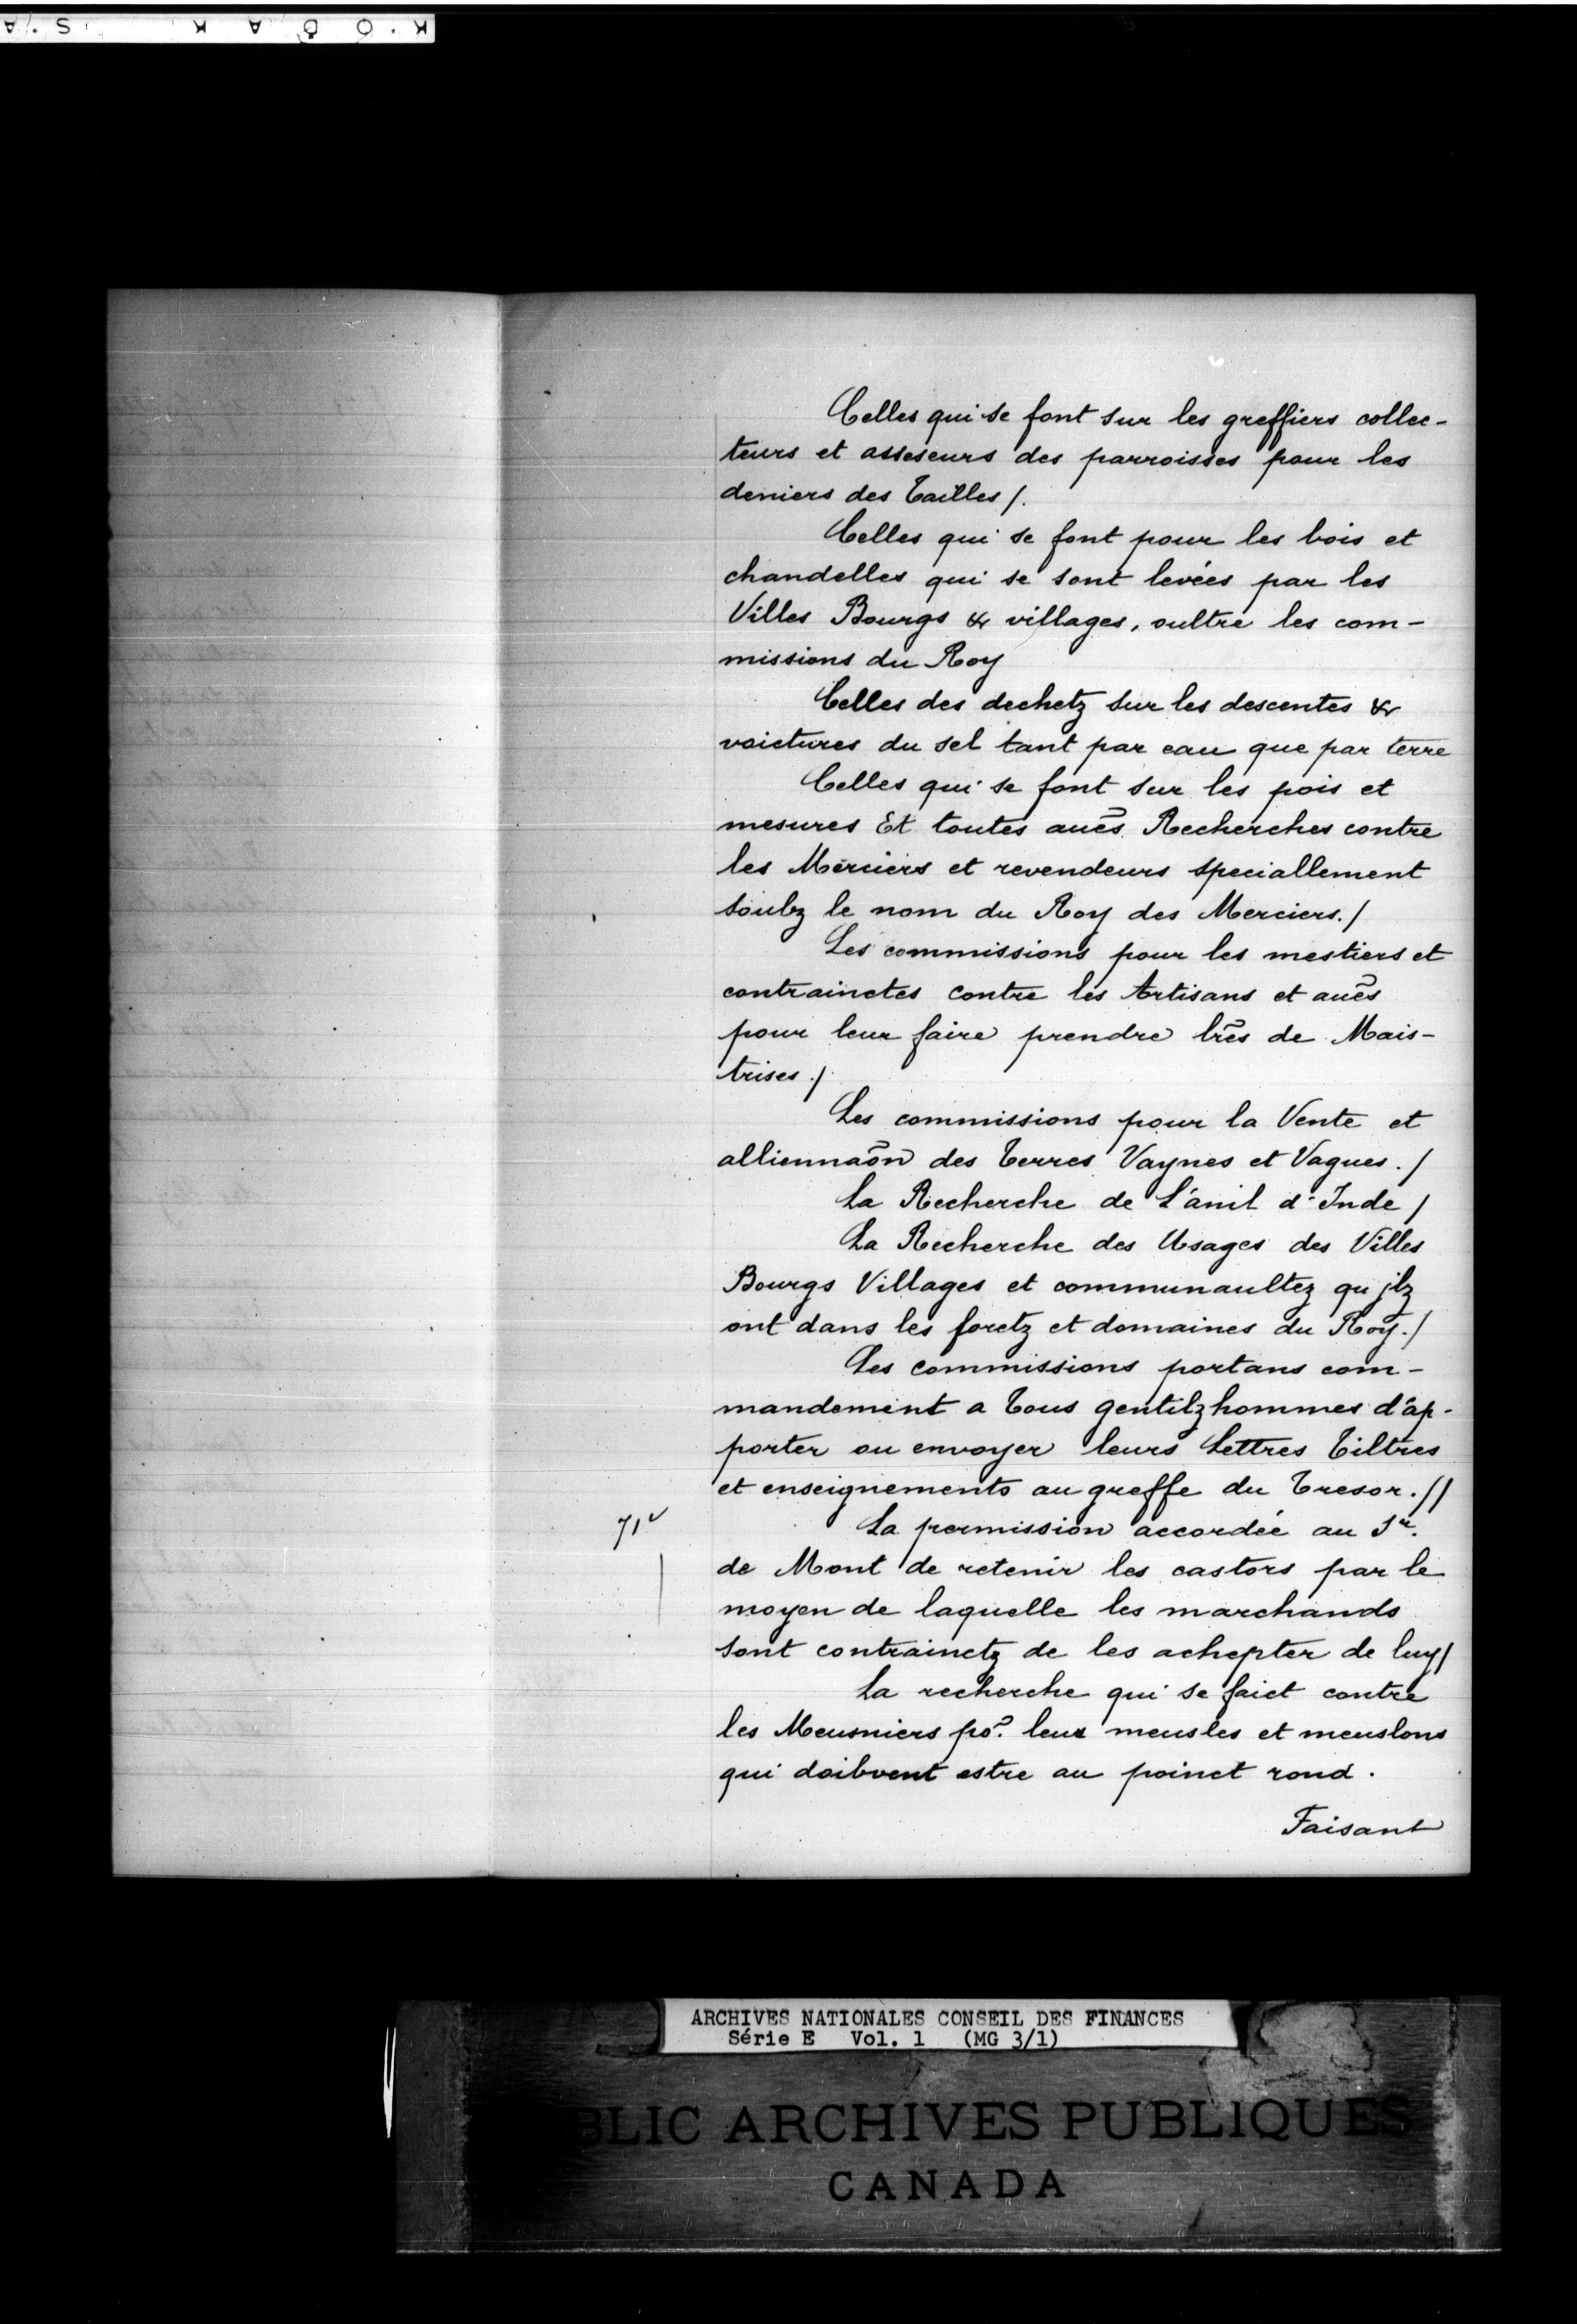 Celles qui se font sur les greffiers collec-
teurs et asseseurs des parroisses pour les
deniers des Tailles /.
Celles qui se font pour les bois et
chandelles qui se sont levées par les
Villes Bourgs & villages, oultre les com-
missions du Roy
Celles des dechetz sur les descentes &
voictures du sel tant par eau que par terre
Celles qui se font sur les pois et
mesures Et toutes auẽs Recherches contre
les Merciers et revendeurs speciallement
soubz le nom du Roy des Merciers./
Les commissions pour les mestiers et
contrainctes contre les Artisans et auẽs
pour leur faire prendre lrẽs de Mais-
trises ./
Les commissions pour la Vente et
alliennaõn des Terres Vaynes et Vagues ./
La Recherche de L'anil d'Inde /
La Recherche des Usages des Villes
Bourgs Villages et communaultez qu jlz
ont dans les foretz et domaines du Roy./
Les commissions portans com-
mandement a Tous gentilzhommes d'ap-
porter ou envoyer leurs Lettres Tiltres
et enseignements au greffe du Tresor .//
71v La permission accordée au Sr.
de Mont de retenir les castors par le
moyen de laquelle les marchands
sont contrainctz de les achepter de luy/
La recherche qui se faict contre
les Meusniers po? leur meusles et meuslons
qui doibvent estre au poinct rond .
Faisant
ARCHIVES NATIONALES CONSEIL DES FINANCES
Série E Vol. 1 (MG 3/1)
BLIC ARCHIVES PUBLIQUES
CANADA